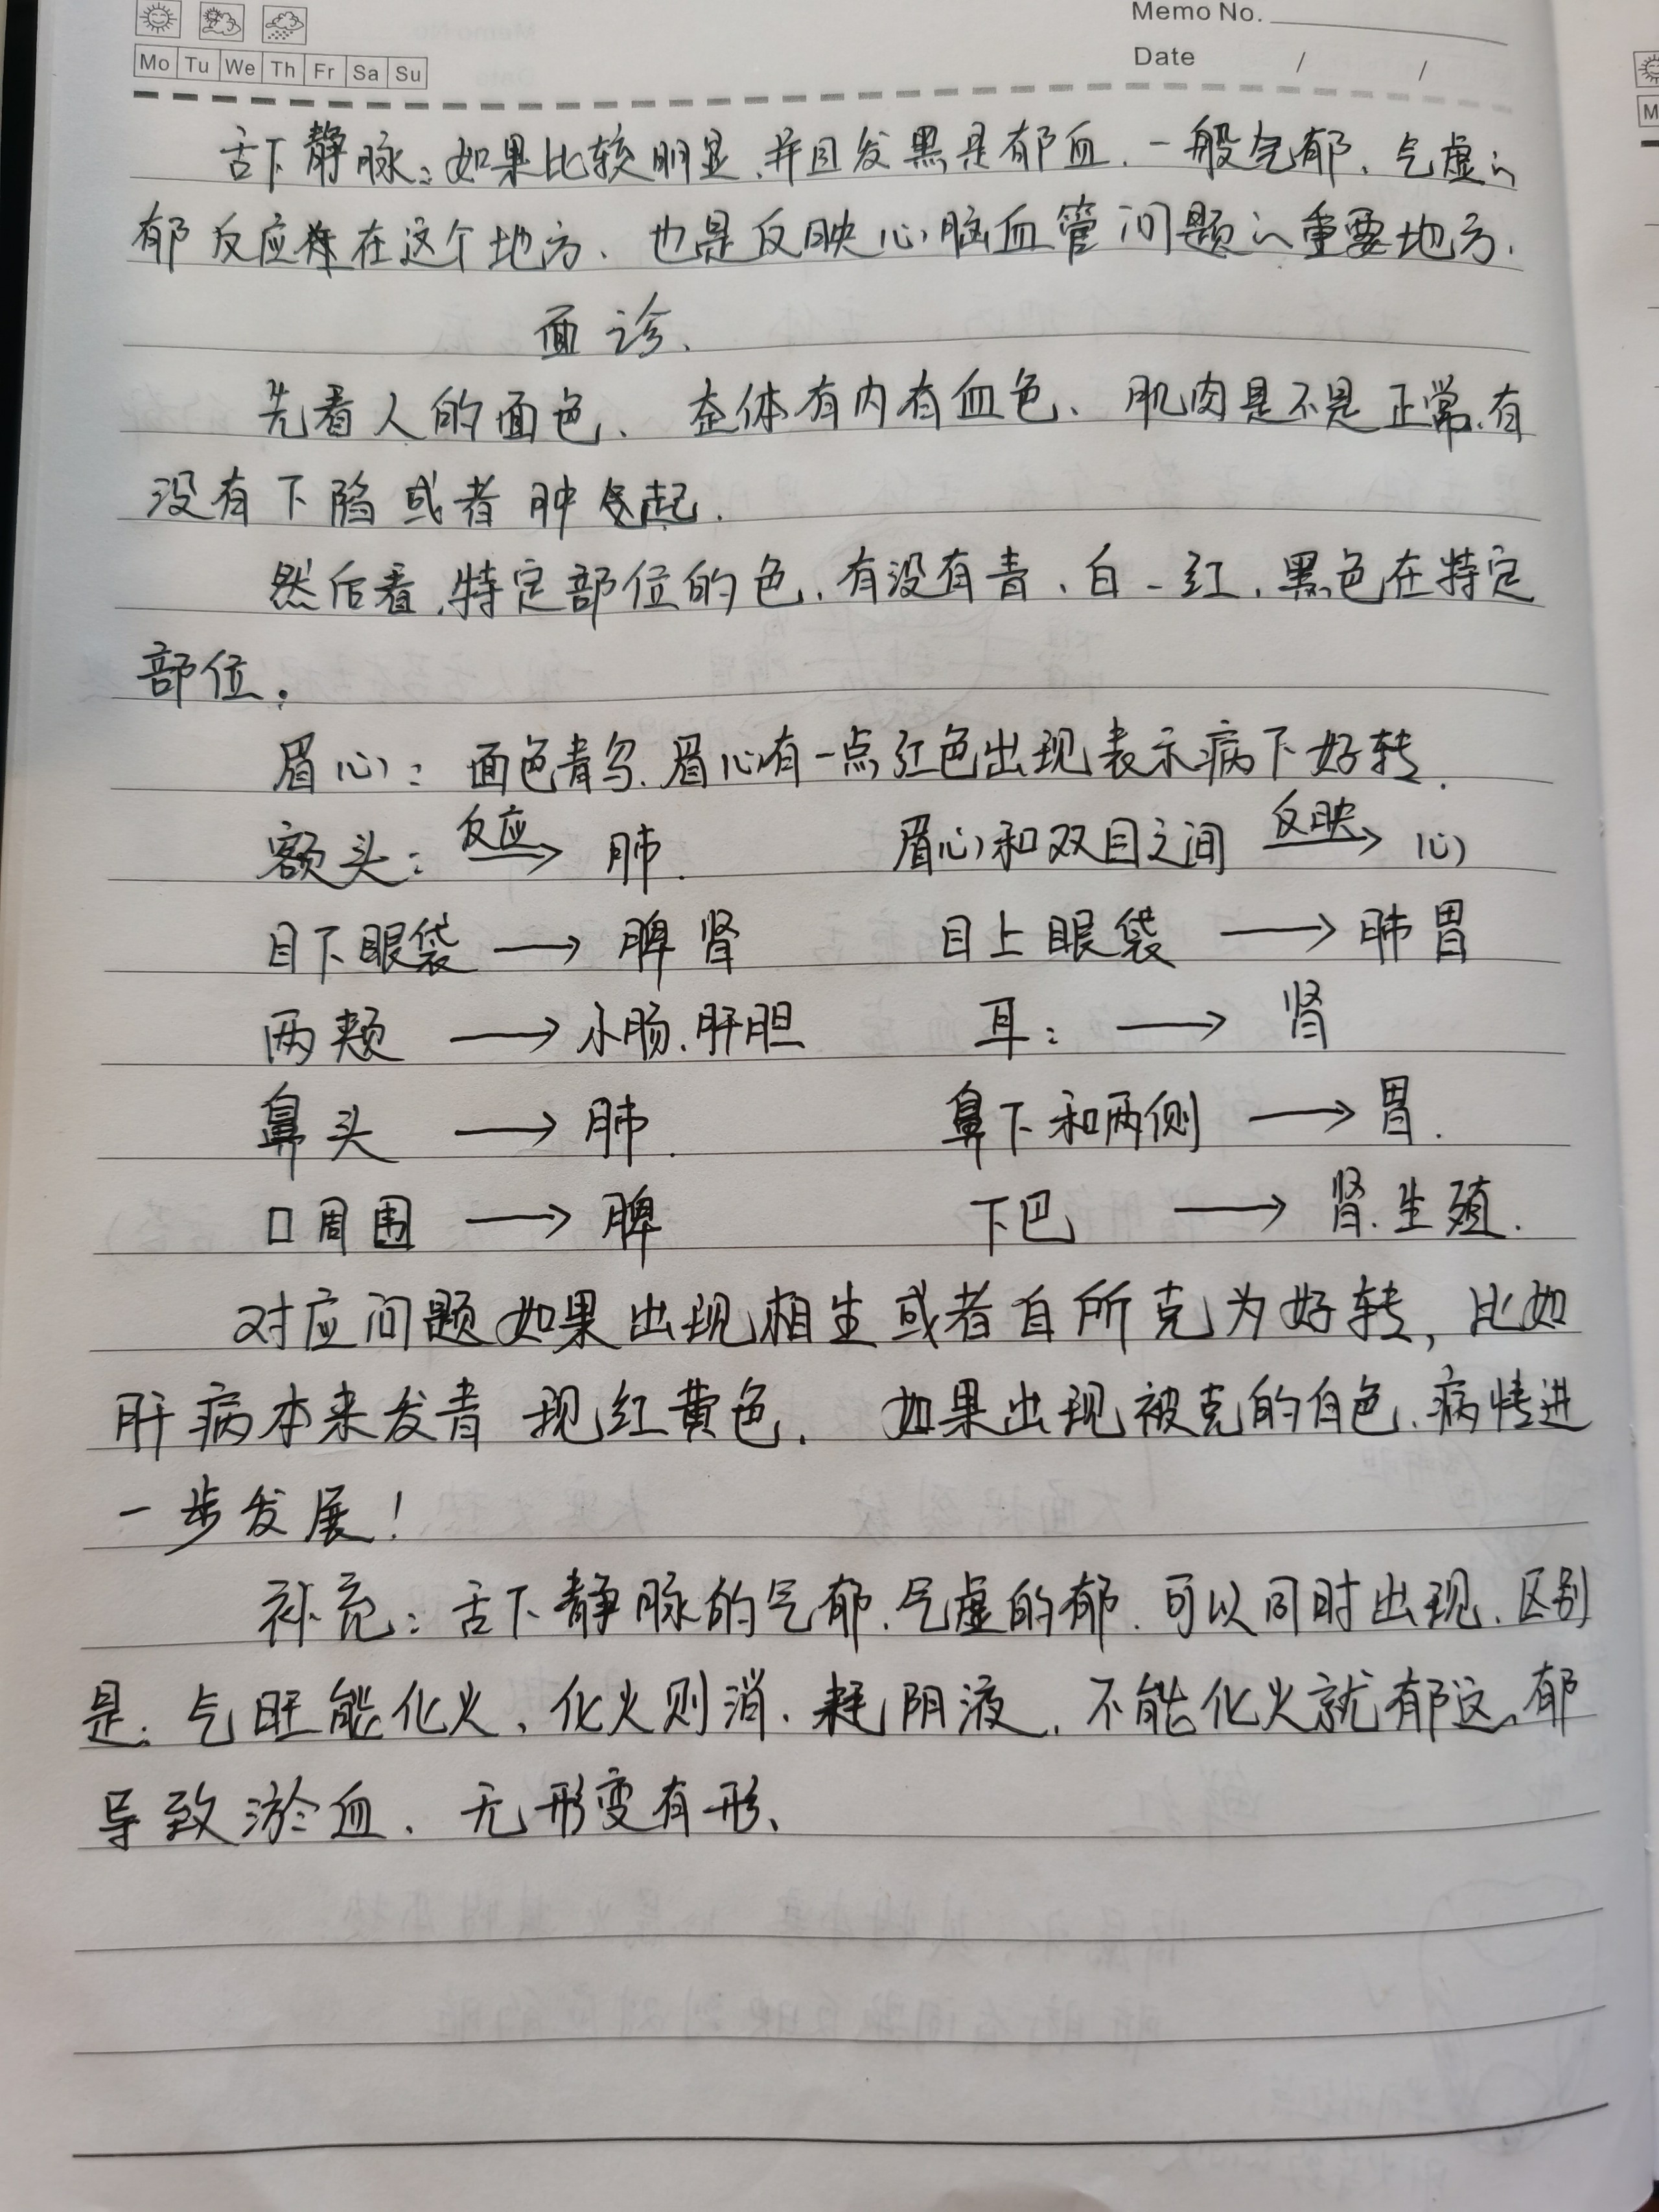 Memo No.
Mo Tu We Th Fr Sa Su
Date / /
舌下静脉：如果比较明显、并且发黑是郁血、一般气郁、气虚的
郁反应在这个地方、也是反映心脑血管问题的重要地方.
面诊、
先看人的面色、整体有内有血色、肌肉是不是正常、有
没有下陷或者肿起.
然后看、特定部位的色、有没有青、白、红、黑色在特定
部位。
眉心：面色青乌、眉心有一点红色出现表示病下好转.
额头：反应→ 肺. 眉心和双目之间 反映→ 心
目下眼袋 → 脾肾 目上眼袋 → 肺胃
两颊 → 小肠、肝胆 耳： → 肾
鼻头 → 肺. 鼻下和两侧 → 胃.
口周围 → 脾 下巴 → 肾、生殖.
对应问题如果出现相生或者自所克为好转，比如
肝病本来发青 现红黄色. 如果出现被克的白色、病情进
一步发展！
补充：舌下静脉的气郁、气虚的郁、可以同时出现、区别
是：气旺能化火、化火则消、耗阴液、不能化火就郁这、郁
导致淤血、无形变有形、